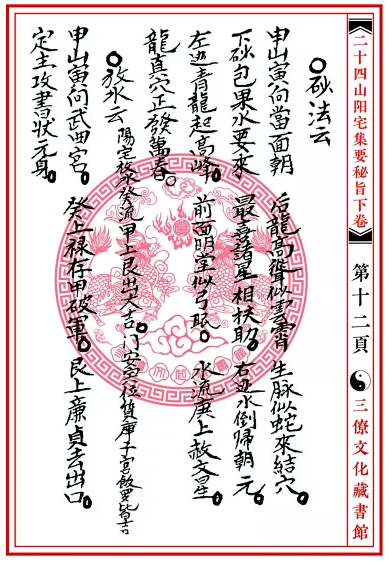 二十四山阳宅集要秘旨下卷 第十二頁 三僚文化藏書館
○砂法云
申山寅向當面朝 后龍高聳似雲霄 生脉似蛇來結穴。
下砂包果水要來 最喜諸星相扶助。 右边水倒歸朝元。
左边青龍起高峰。 前面明堂似弓眠。 水流庚上赦文星。
龍真穴正發萬春。
○放水云 陽宅放水癸流甲上艮出大吉。門安富位貨庫子宮皆吉
申山寅向武曲宮。 癸上禄存甲破軍。 艮上廉貞去出口。
定主攻書狀元身。